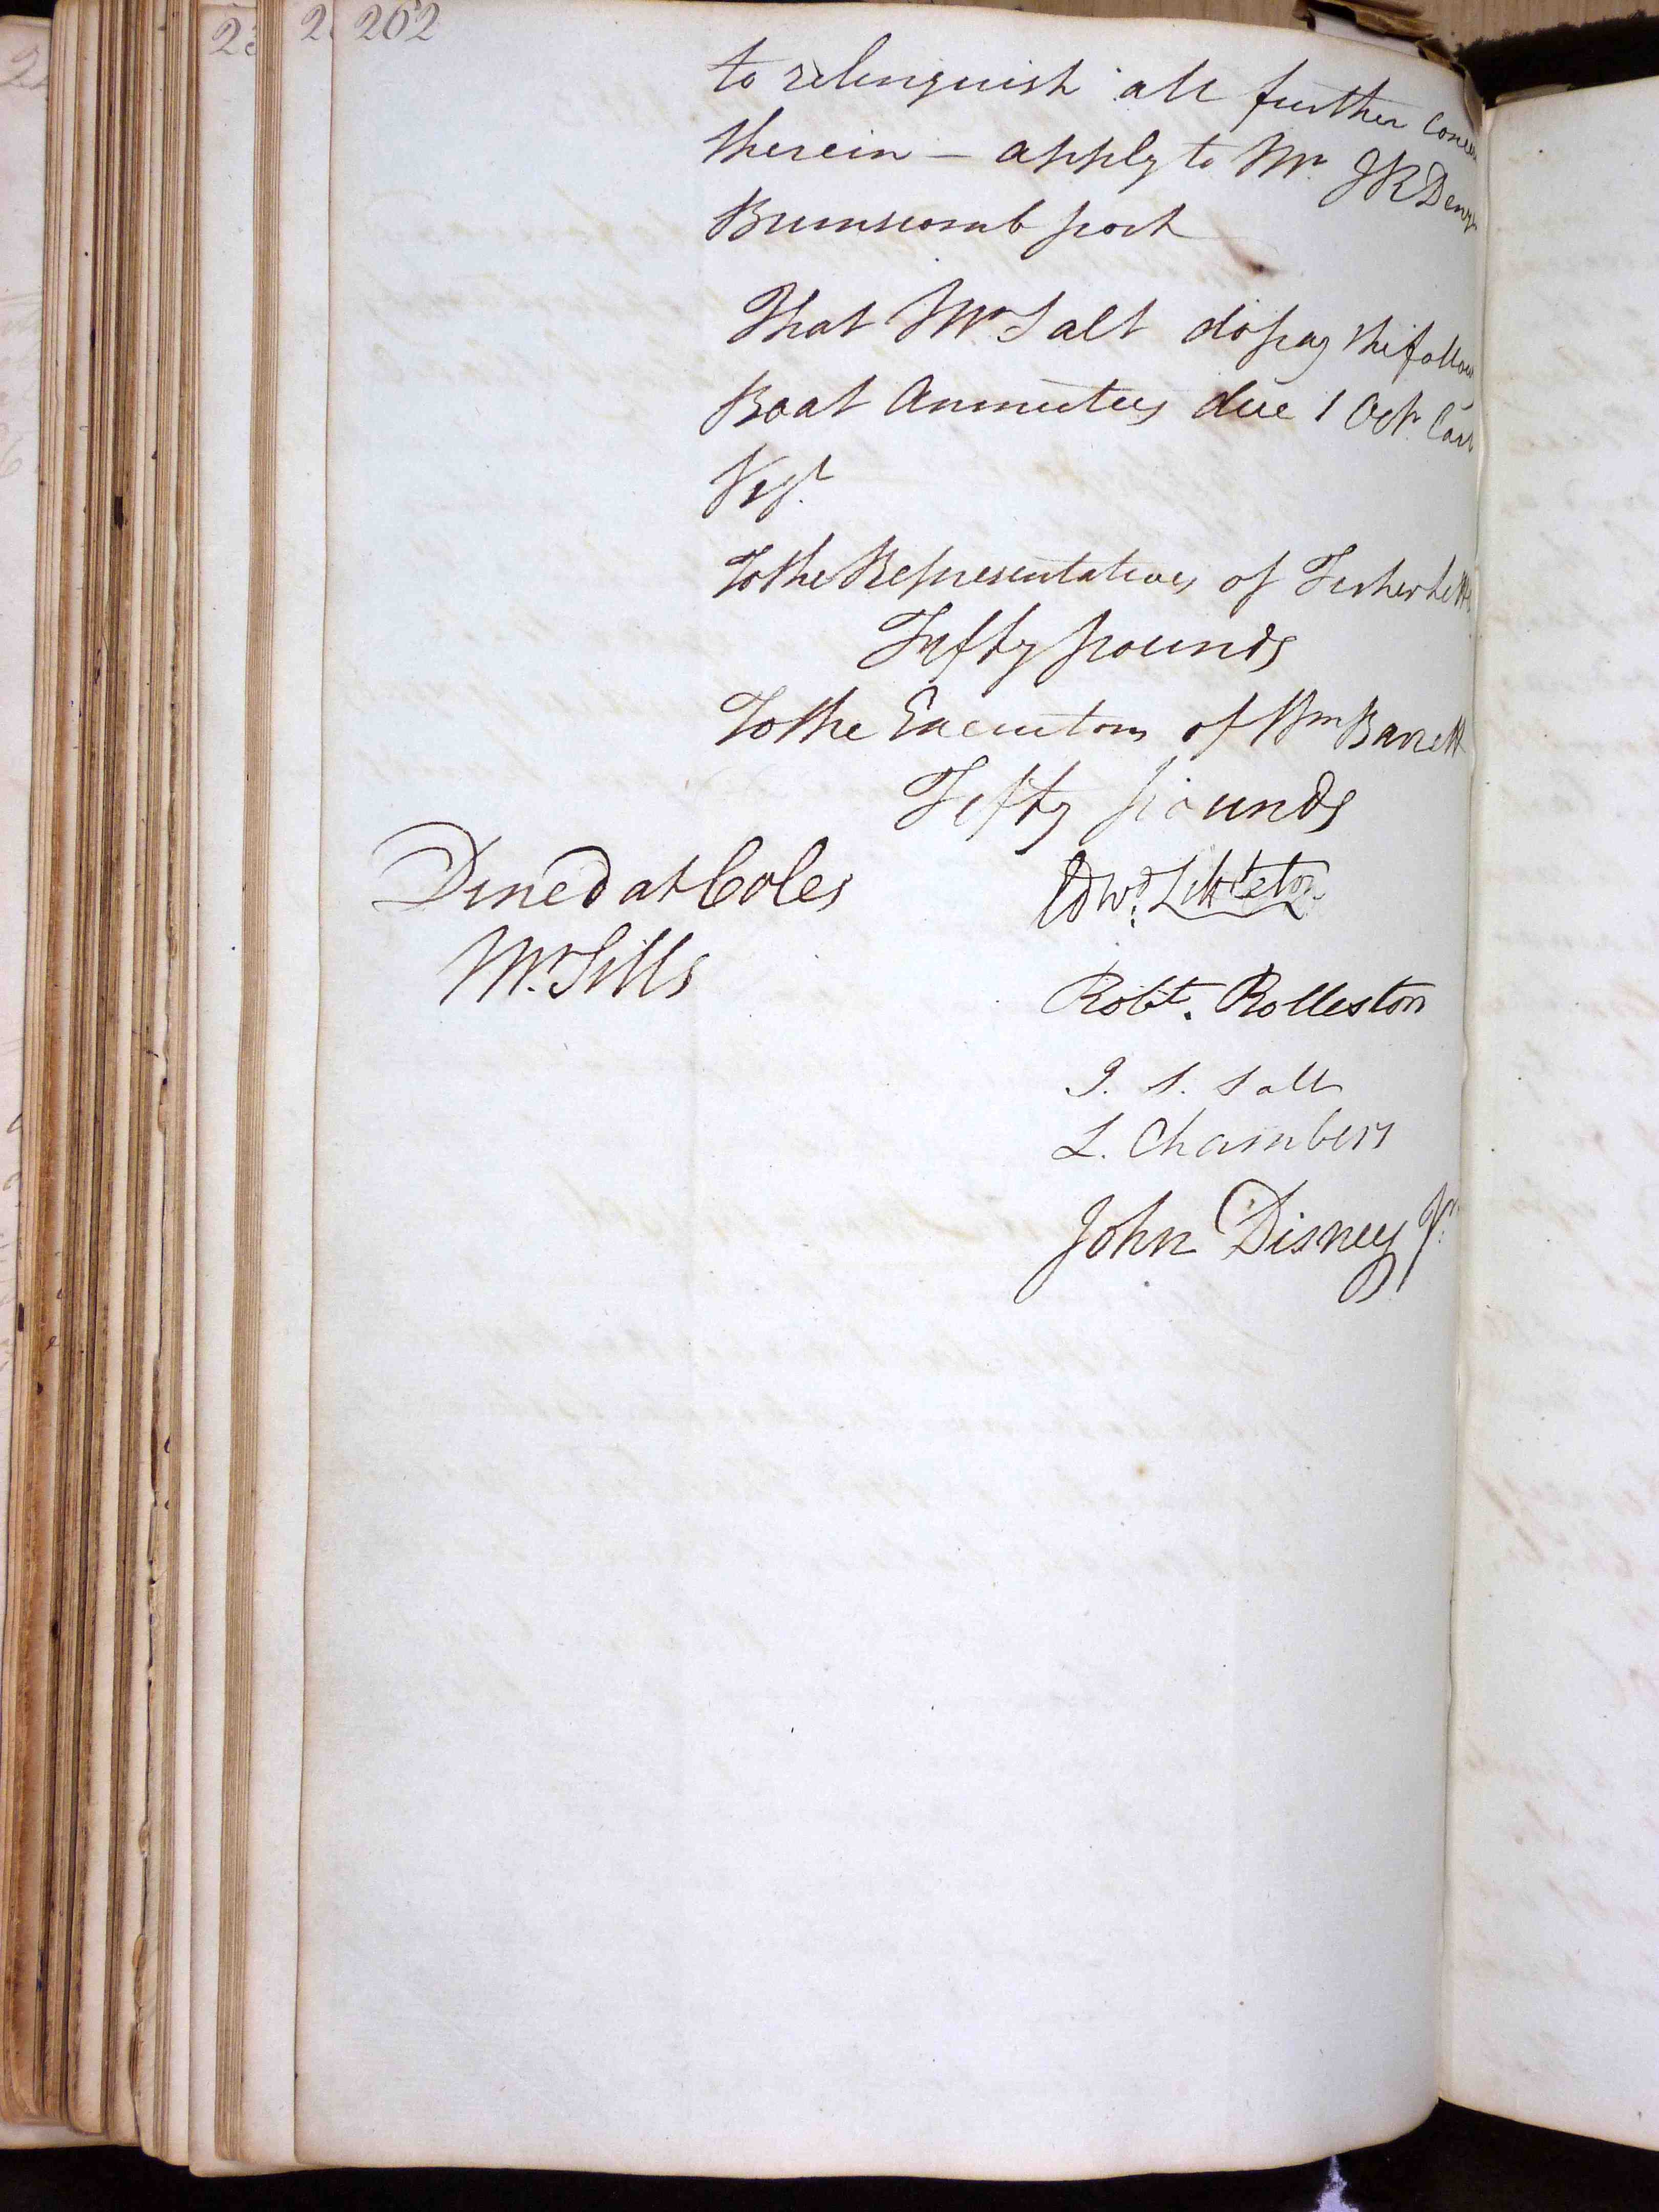 262
to relinquish all further concern
therein – apply to Mr. JR Denyer
Brimscomb port
That Mr Salt do pay the follow
Boat Annuities due 1 Octr. last
Vizt.
To the Representatives of Fisher
Fifty pounds
To the Executors of Wm Barrett
Fifty pounds
Dined at Coles
Mr. Sills
Edwd. Littleton
Robt. Rolleston
J. S. Salt
L. Chambers
John Disney Jr.